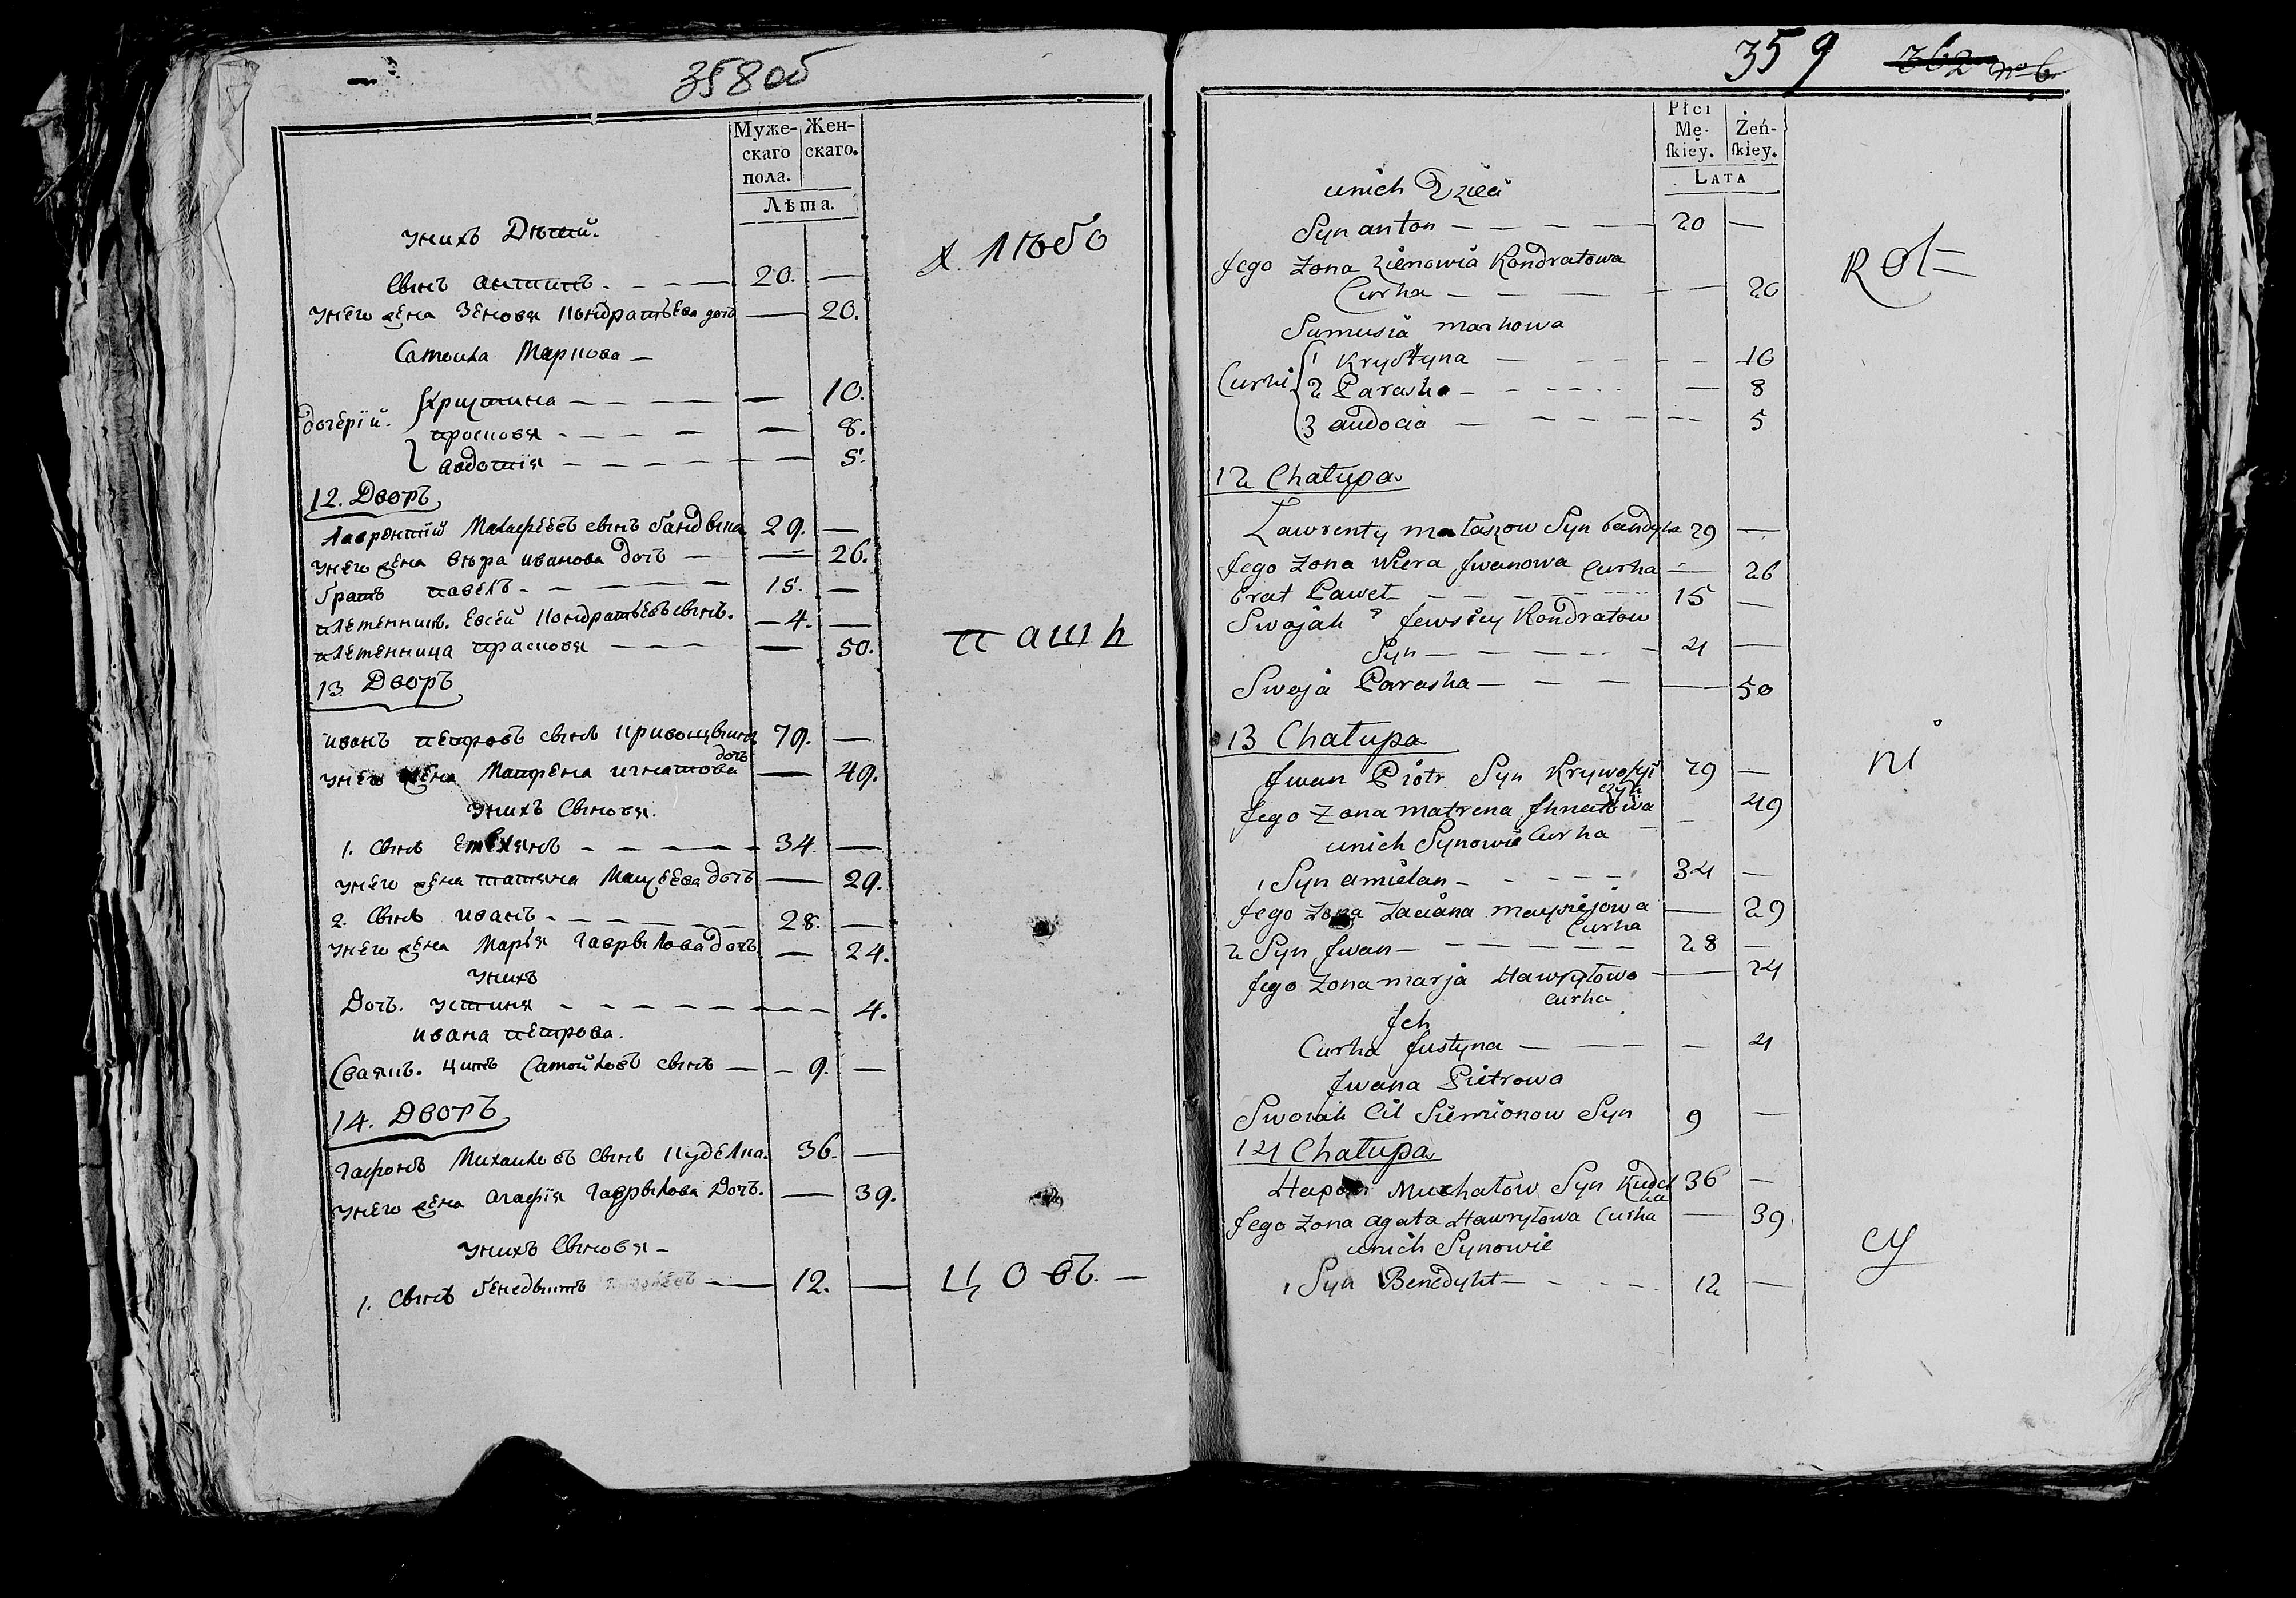 358 об
Муже-
скаго
пола.
Жен-
скаго.
Лѣта.
унихъ Дѣтей.
Сынъ антипъ. 20. —
унего жена Зеновя Кондратьева дочь — 20.
Самойла Маркова —
дочерій. Христина — 10.
просковя — 8.
авдотія — 5.
хлѣбо
12. Дворъ
Лаврентій Матфеевъ сынъ бандыка 29. —
унего жена вѣра иванова дочь — 26.
братъ павелъ 15. —
племенникъ. Евсей Кондратьевъ сынъ. 4. —
племенница прасковя — 50.
пашц
13 Дворъ
иванъ петровъ сынъ кривошыинъ 79. —
унего жена Матрена игнатова дочь — 49.
унихъ Сыновя.
1. Сынъ Емелянъ 34. —
унего жена татяна Мацеева дочь — 29.
2. Сынъ иванъ 28. —
унего жена Маря гаврылова дочь — 24.
унихъ
Дочь. устиня 4.
ивана петрова.
Сваякъ. титъ Самойловъ сынъ — 9. —
14. Дворъ
гапонъ Михаиловъ Сынъ куделка. 36. —
унего жена агафія гаврылова Дочь. — 39.
унихъ Сыновя —
1. Сынъ бенедыктъ — 12. —
цовъ. —
359 362
Płci
Mę-
ſkiey.
Żeń-
ſkiey.
Lata
unich Dzieci
Syn anton 20 —
Jego Zona Zienowia Kondratowa
Curka 20
Samusia markowa
Curki 1 Krystyna 10
2 Paraska 8
3 audocia 5
Rol-
12 Chałupa
Lawrenty matászow Syn bandyka 29 —
Jego Zona Wiera Jwanowa Curka — 26
brat Paweł 15 —
Swojak Jewsiey Kondratow
Syn 4 —
Swoja Paraska — 50
13 Chałupa
Jwan Piotr Syn Krywoszyi 79 —
Jego Zona matrena Jhnatowa 49
unich Synowie Curka
ni
1 Syn amielan 34 —
Jego Zona Taciana maysiejowa — 29
Curka
2 Syn Jwan 28 —
Jego Zona marja Hawryłowa — 24
Curka
Jch
Curka Justyna 4
Jwana Pietrowa
Swoiak Cit Siemionow Syn 9 —
14 Chałupa
Hapon Michałow Syn Kudel 36 —
ka
Jego Zona agata Hawryłowa Curka — 39
unich Synowie
1 Syn Benedykt 12 —
cy